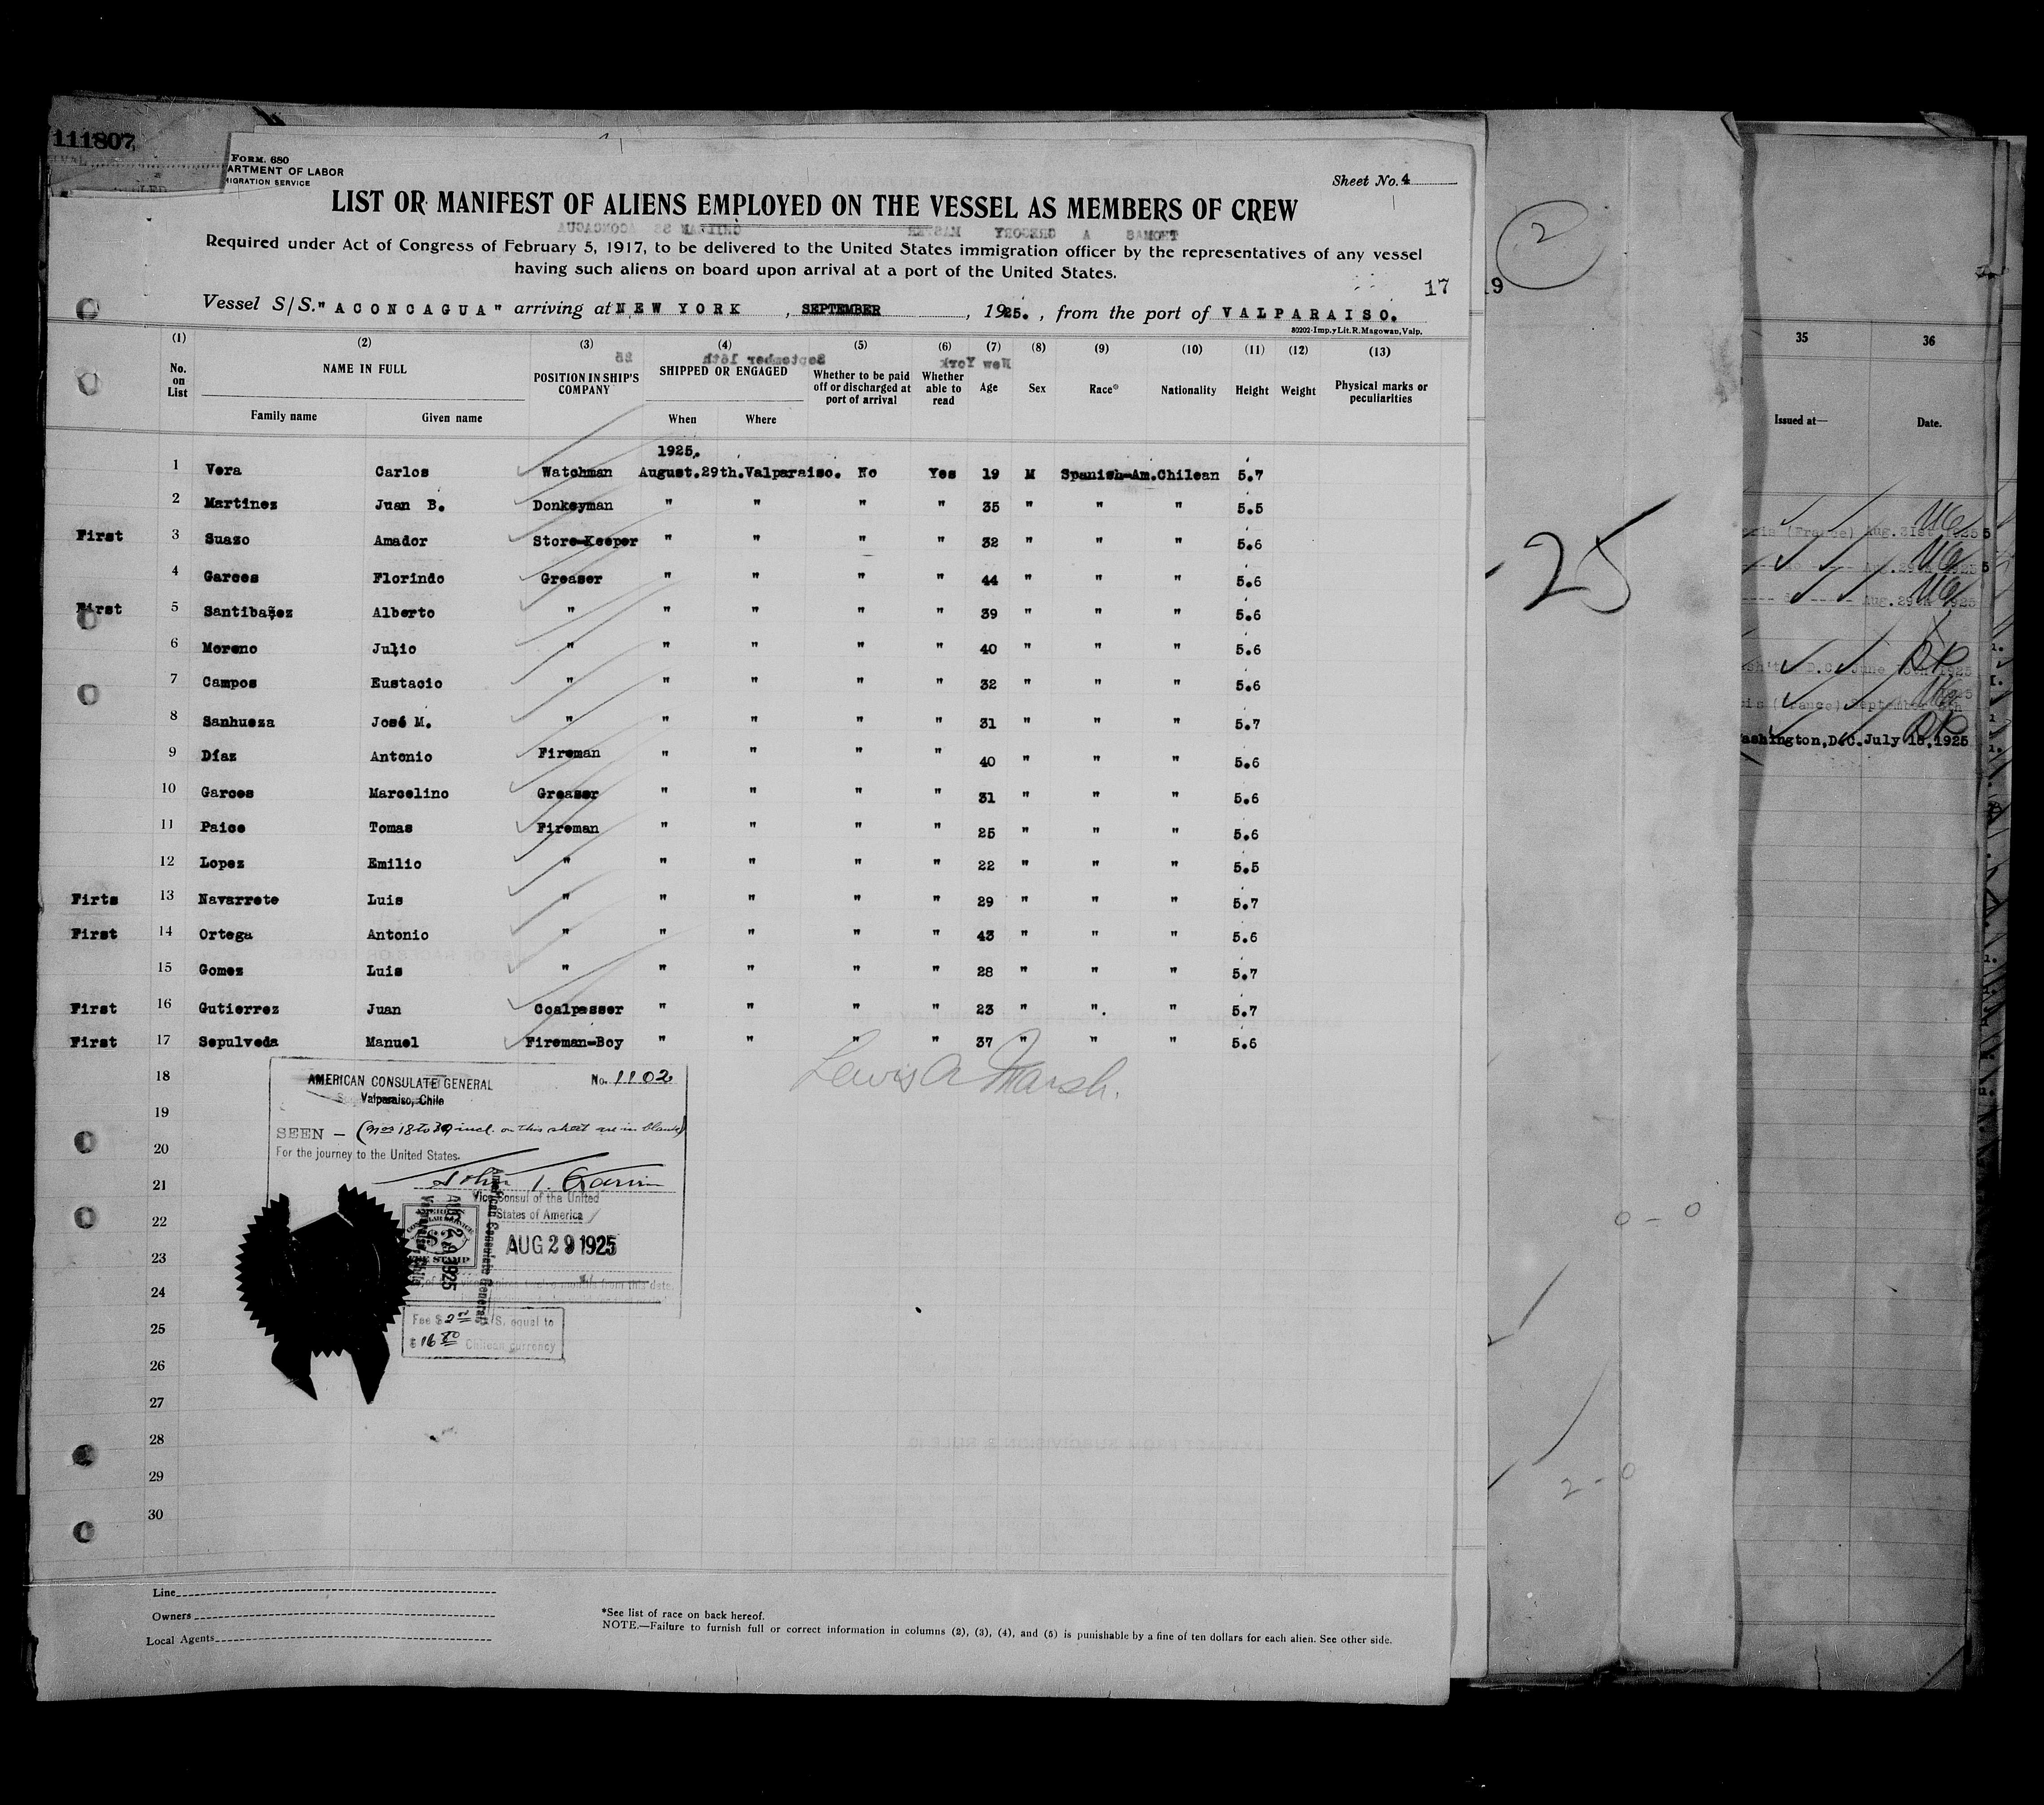 111807
FORM. 680
ARTMENT OF LABOR
MIGRATION SERVICE
Sheet No. 4
LIST OR MANIFEST OF ALIENS EMPLOYED ON THE VESSEL AS MEMBERS OF CREW
Required under Act of Congress of February 5, 1917, to be delivered to the United States immigration officer by the representatives of any vessel
having such aliens on board upon arrival at a port of the United States.
17
Vessel S/S. "ACONCAGUA" arriving at NEW YORK , SEPTEMBER , 1925. , from the port of VALPARAISO.
80202-Imp.yLit.R.Magowan,Valp.
(1) (2) (3) (4) (5) (6) (7) (8) (9) (10) (11) (12) (13)
No. on List NAME IN FULL Family name Given name POSITION IN SHIP'S COMPANY SHIPPED OR ENGAGED When Where Whether to be paid off or discharged at port of arrival Whether able to read Age Sex Race* Nationality Height Weight Physical marks or peculiarities
1925.
1 Vera Carlos Watchman August.29th.Valparaiso. No Yes 19 M Spanish-Am.Chilean 5.7
2 Martinez Juan B. Donkeyman " " " " 35 " " " 5.5
First 3 Suazo Amador Store-Keeper " " " " 32 " " " 5.6
4 Garces Florindo Greaser " " " " 44 " " " 5.6
First 5 Santibañez Alberto " " " " " 39 " " " 5.6
6 Moreno Julio " " " " " 40 " " " 5.6
7 Campos Eustacio " " " " " 32 " " " 5.6
8 Sanhueza José M. " " " " " 31 " " " 5.7
9 Díaz Antonio Fireman " " " " 40 " " " 5.6
10 Garces Marcelino Greaser " " " " 31 " " " 5.6
11 Paice Tomas Fireman " " " " 25 " " " 5.6
12 Lopez Emilio " " " " " 22 " " " 5.5
Firts 13 Navarrete Luis " " " " " 29 " " " 5.7
First 14 Ortega Antonio " " " " " 43 " " " 5.6
15 Gomez Luis " " " " " 28 " " " 5.7
First 16 Gutierrez Juan Coalpasser " " " " 23 " ". " 5.7
First 17 Sepulveda Manuel Fireman-Boy " " " " 37 " " " 5.6
Lewis A Marsh.
18
19
20
21
22
23
24
25
26
27
28
29
30
AMERICAN CONSULATE GENERAL No. 1102
Valparaiso, Chile
SEEN - (Nos 18 to 30 incl. on this sheet are in blank)
For the journey to the United States.
John T. Garvin
Vice Consul of the United
States of America
AUG 29 1925
American Consulate General
Fee $ 2 U/S, equal to
$ 16 Chilean currency
Line
Owners
Local Agents
*See list of race on back hereof.
NOTE.—Failure to furnish full or correct information in columns (2), (3), (4), and (5) is punishable by a fine of ten dollars for each alien. See other side.
2
19
-25
0 - 0
2 - 0
35 36
Issued at— Date.
(France) Aug. 31st 1925
Aug. 29th 1925
Washington, D.C. July 15, 1925